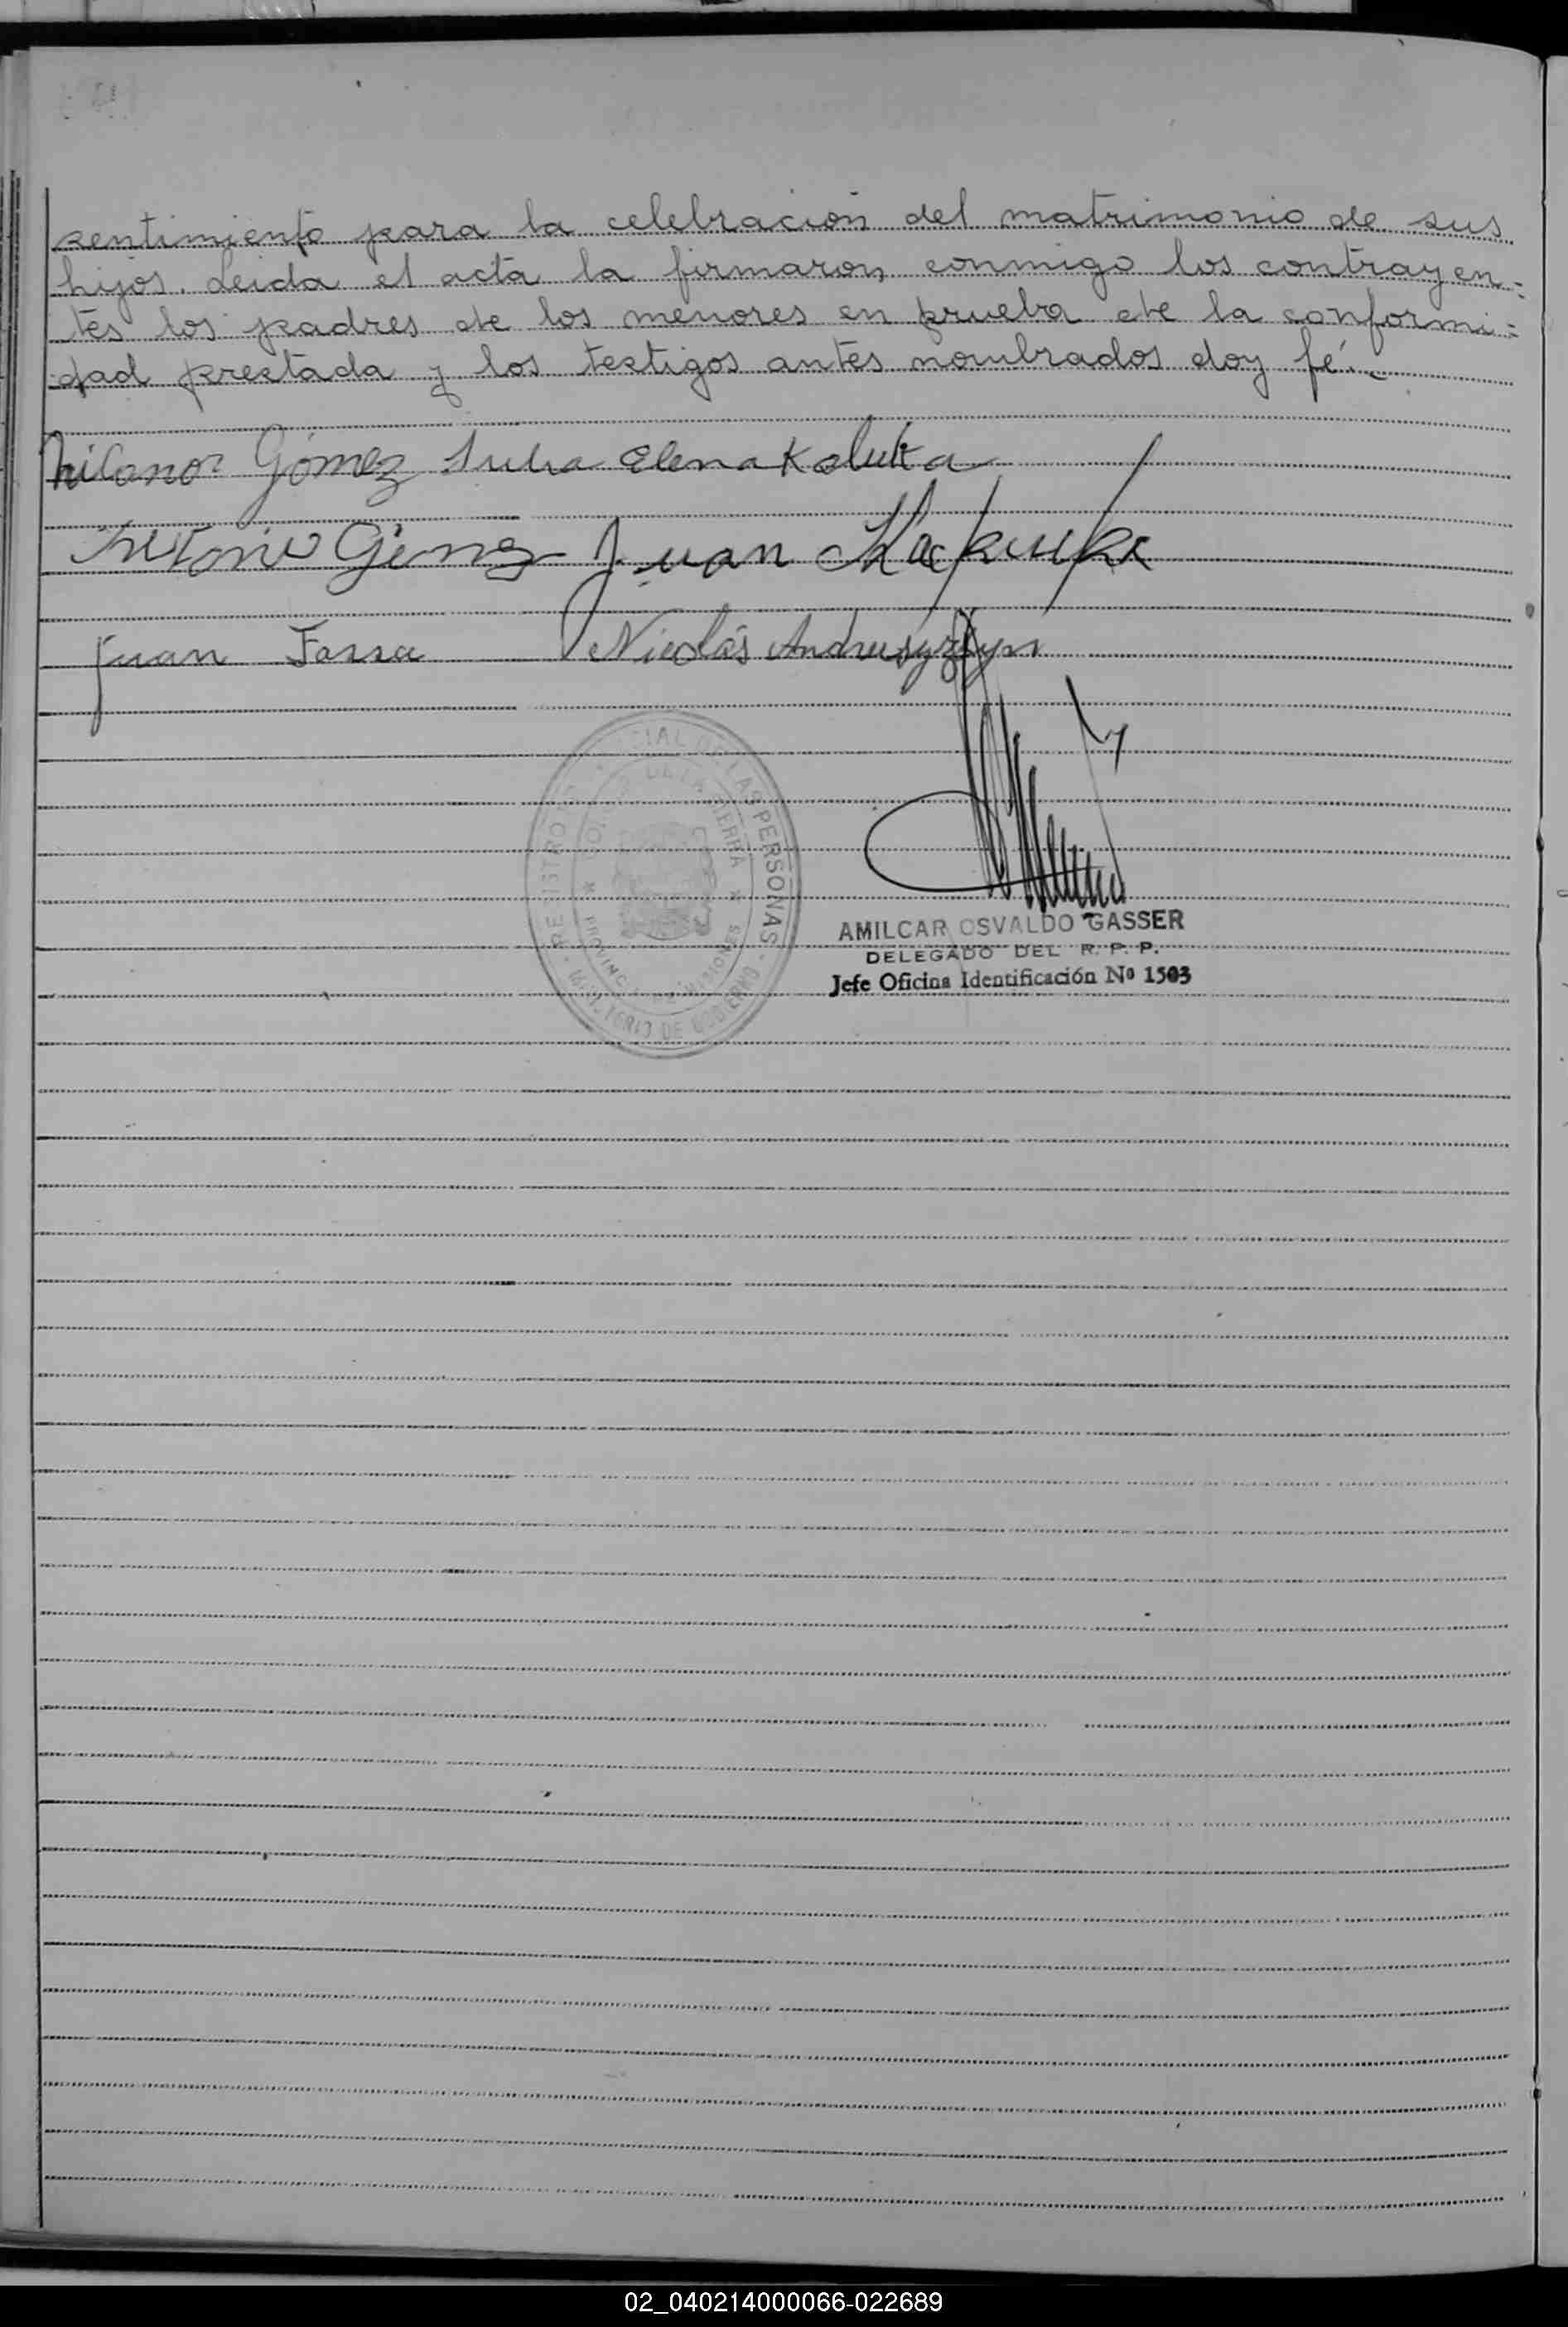 sentimiento para la celebración del matrimonio de sus
hijos. Leida el acta la firmaron conmigo los contrayen=
tes los padres de los menores en prueba de la conformi=
dad prestada y los testigos antes nombrados doy fé.
Nicanor Gómez Julia Elena Kaluka
Juan
Juan Nicolás
REGISTRO PROVINCIAL DE LAS PERSONAS
MINISTERIO DE GOBIERNO
DE LA SIERRA
PROVINCIA DE MISIONES
AMILCAR OSVALDO GASSER
DELEGADO DEL R. P. P.
Jefe Oficina Identificación Nº 1503
02_040214000066-022689